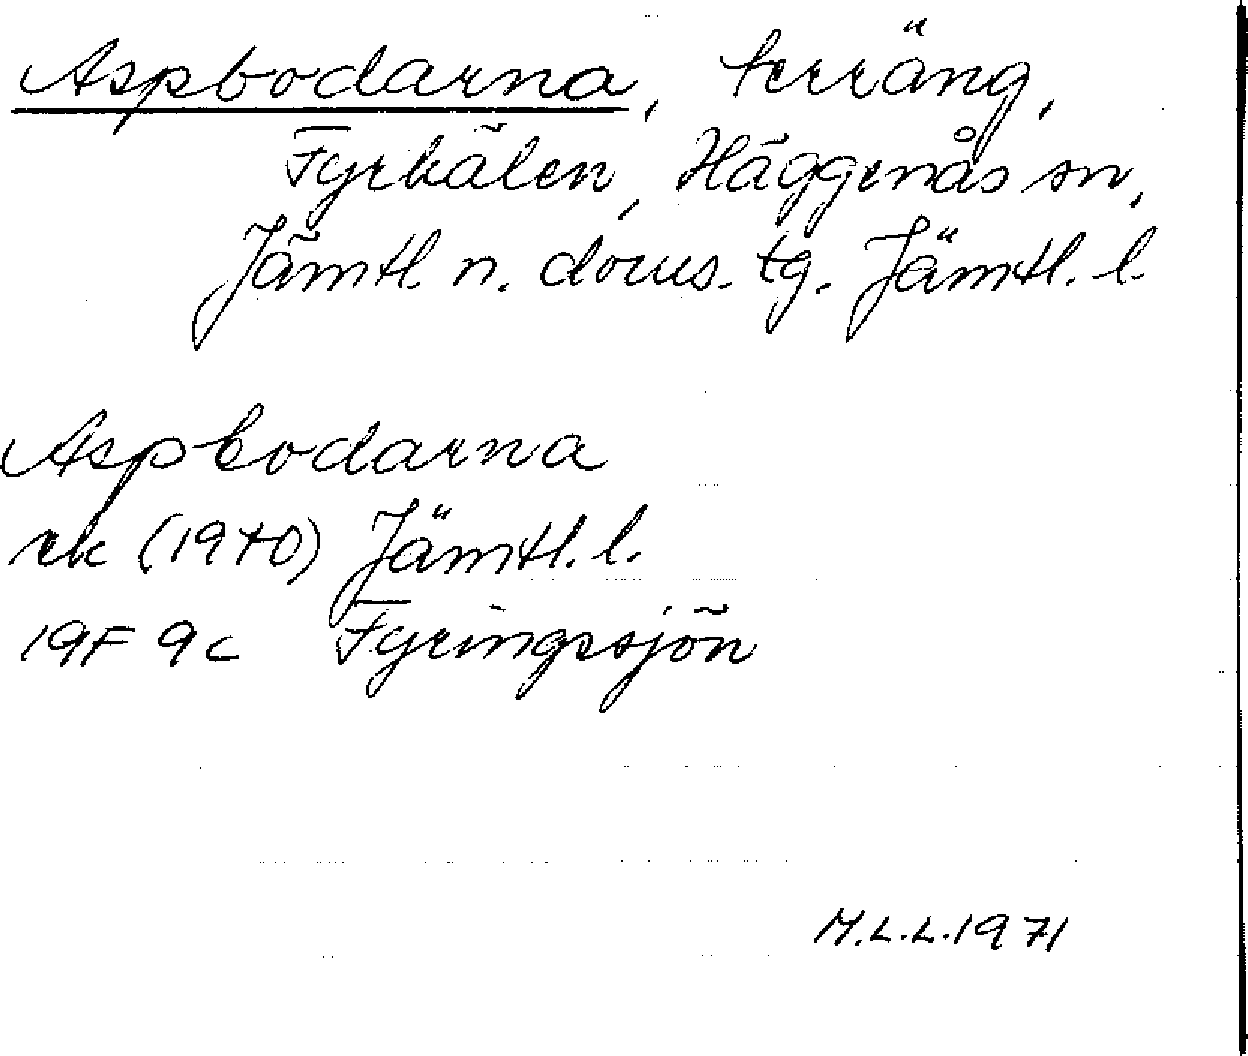 Aspbodarna, terräng,
Fyrkälen, Häggenås sn,
Jämtl. n. doms. tg. Jämtl. l.
Aspbodarna
rk (1970) Jämtl. l.
19F 9c Fyringssjön
M.L.L. 1971